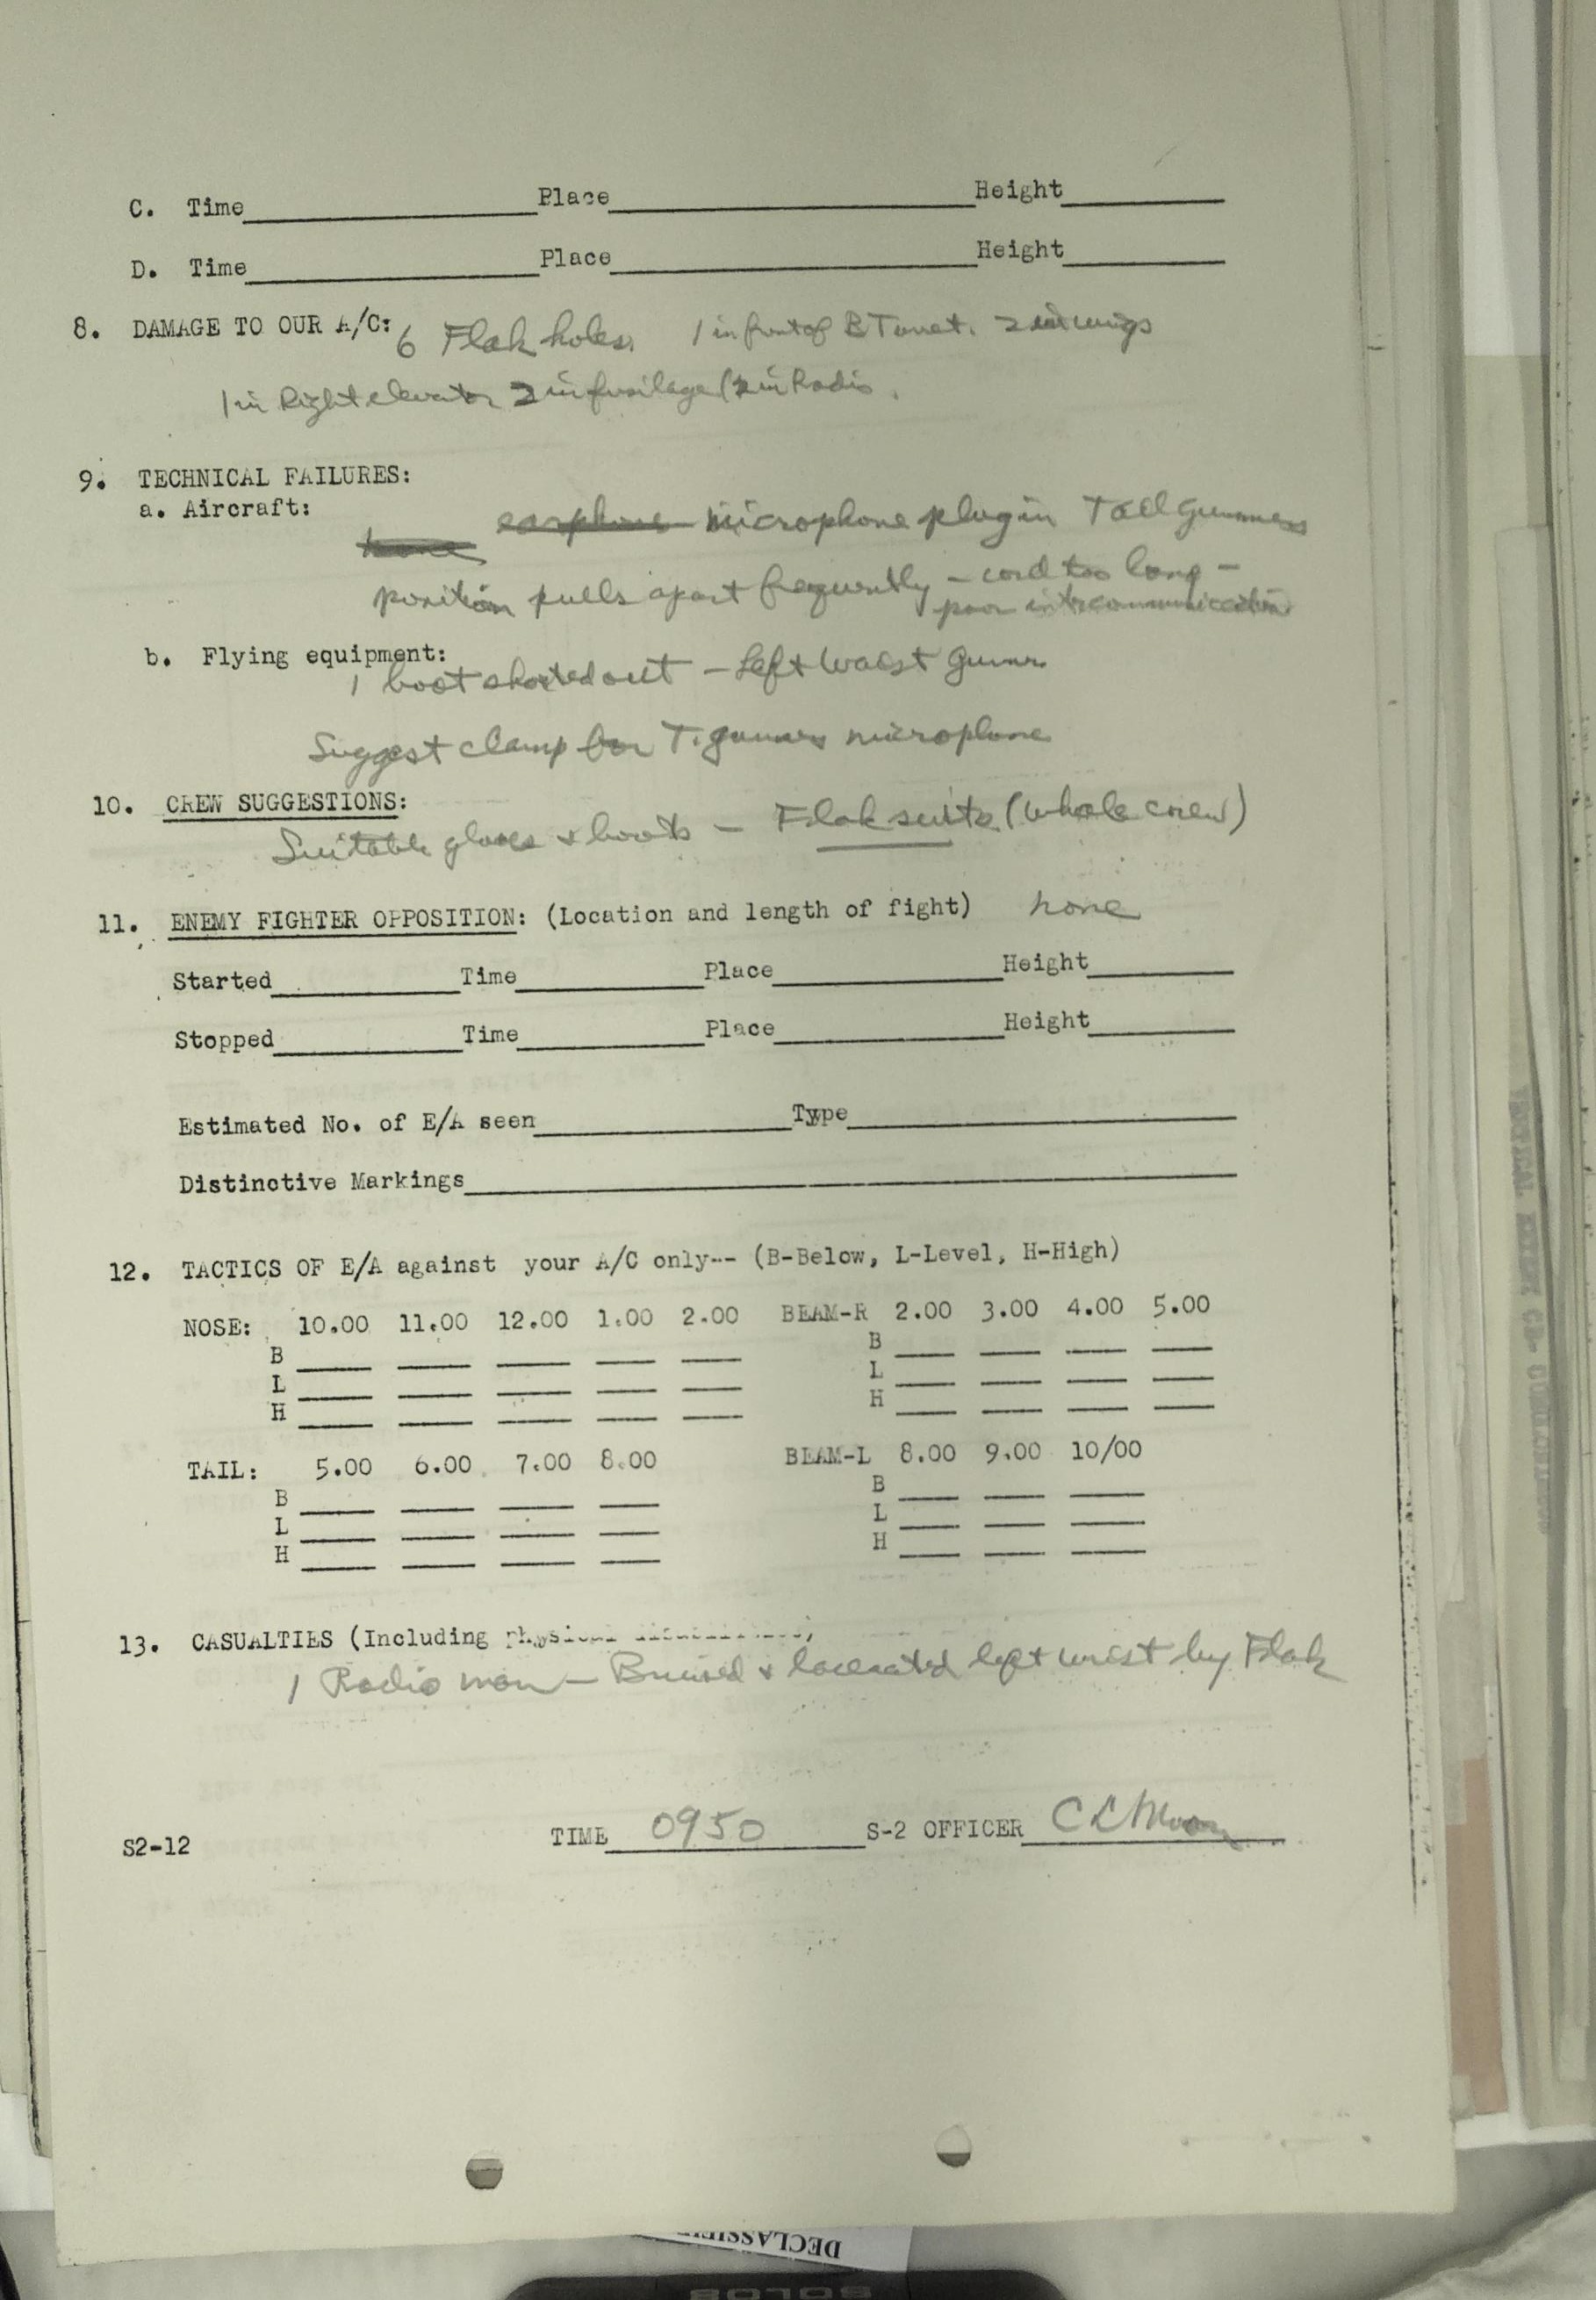 C. Time Place Height
D. Time Place Height
8. DAMAGE TO OUR A/C: 6 Flak holes. 1 in front of B Turret. 2 in wings
1 in Right elevator 2 in fusilage (2 in Radio.
9. TECHNICAL FAILURES:
a. Aircraft:
none earphone microphone plug in Tail Gunners
position pulls apart frequently – cord too long –
poor intercommunication
b. Flying equipment:
1 boot shorted out – Left Waist Gunner
Suggest clamp for T. gunners microphone
10. CREW SUGGESTIONS:
Suitable gloves & boots – Flak suits (whole crew)
11. ENEMY FIGHTER OPPOSITION: (Location and length of fight) none
Started Time Place Height
Stopped Time Place Height
Estimated No. of E/A seen Type
Distinctive Markings
12. TACTICS OF E/A against your A/C only-- (B-Below, L-Level, H-High)
NOSE: 10.00 11.00 12.00 1.00 2.00 BEAM-R 2.00 3.00 4.00 5.00
B B
L L
H H
TAIL: 5.00 6.00 7.00 8.00 BEAM-L 8.00 9.00 10/00
B B
L L
H H
13. CASUALTIES (Including physical
1 Radio man – Bruised & lacerated left wrist by Flak
S2-12 TIME 0950 S-2 OFFICER C L Moon
DECLASSIFIE